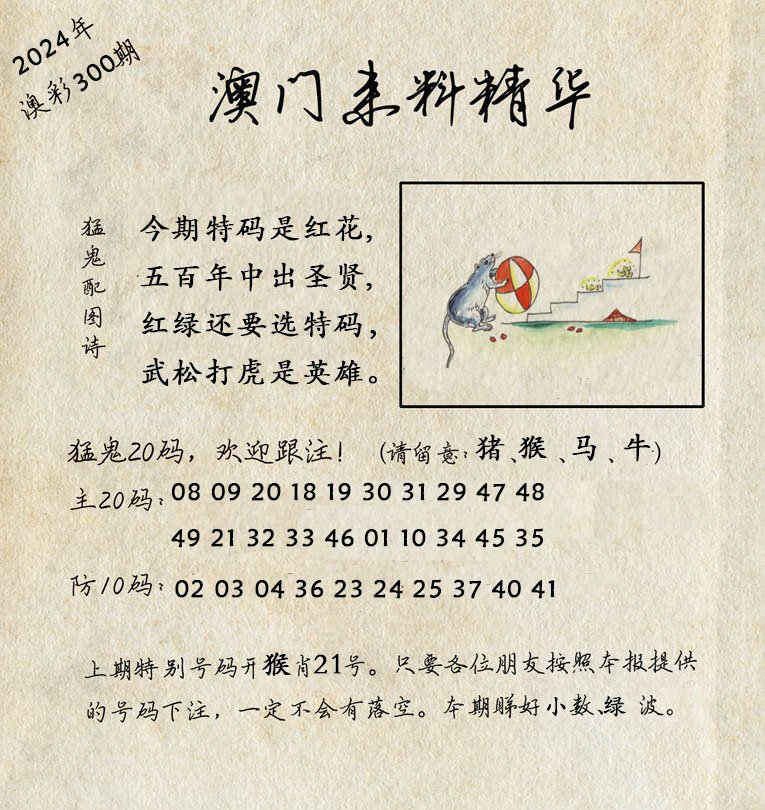 2024年
澳彩300期
澳门来料精华
猛鬼配图诗
今期特码是红花，
五百年中出圣贤，
红绿还要选特码，
武松打虎是英雄。
猛鬼20码，欢迎跟注！（请留意：猪、猴、马、牛）
主20码：08 09 20 18 19 30 31 29 47 48
49 21 32 33 46 01 10 34 45 35
防10码：02 03 04 36 23 24 25 37 40 41
上期特别号码开猴肖21号。只要各位朋友按照本报提供
的号码下注，一定不会有落空。本期睇好小数、绿 波。